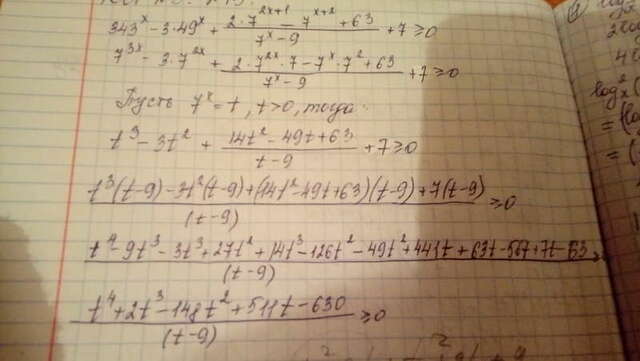 343^x - 3·49^x + (2·7^{2x+1} - 7^{x+2} + 63)/(7^x - 9) + 7 ≥ 0
7^{3x} - 3·7^{2x} + (2·7^{2x}·7 - 7^x·7^2 + 63)/(7^x - 9) + 7 ≥ 0
Пусть 7^x = t, t>0, тогда:
t^3 - 3t^2 + (14t^2 - 49t + 63)/(t - 9) + 7 ≥ 0
(t^3(t-9) - 3t^2(t-9) + (14t^2 - 49t + 63)(t-9) + 7(t-9))/(t-9) ≥ 0
(t^4 - 9t^3 - 3t^3 + 27t^2 + 14t^3 - 126t^2 - 49t^2 + 441t + 63t - 567 + 7t - 63)/(t-9) ≥
(t^4 + 2t^3 - 148t^2 + 511t - 630)/(t-9) ≥ 0